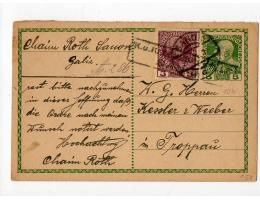 Chaim Roth Sanow
Galiz.
rest bitte nachzunehmen
in dieser Hoffnung daß
die Ordre nach meinen
Wunsch notiert werden
Hochachtung
Chaim Roth
K.u.K.
3
5
W. G. Herren
Kessler & Weiber
in Troppau